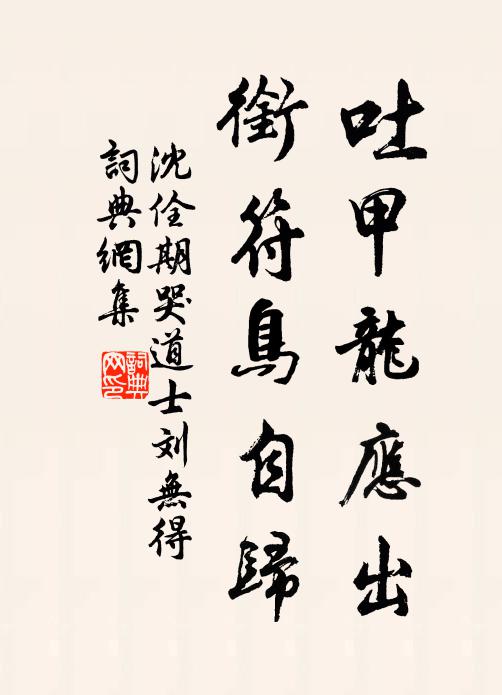 吐甲龍應出
銜符鳥自歸
沈佺期哭道士刘無得
詞典網集
詞典网印